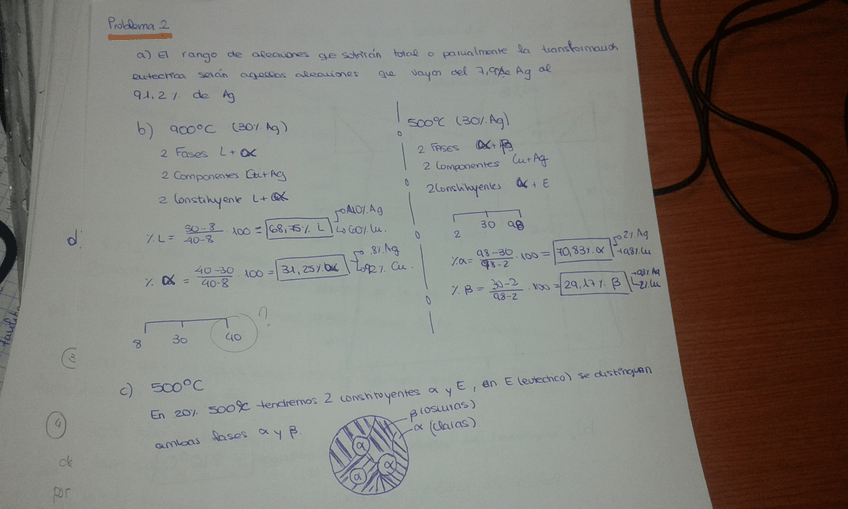 Problema 2
a) El rango de aleaciones que sufrirán total o parcialmente la transformación
eutectica serán aquellas aleaciones que vayan del 7,9% de Ag al
91,2% de Ag
b) 900°C (30% Ag)
2 Fases L + α
2 Componentes Cu + Ag
2 Constituyente L + α
d:
% L = 30-8 / 40-8 · 100 = 68,75% L → 40% Ag → 60% Cu.
% α = 40-30 / 40-8 · 100 = 31,25% α → 8% Ag → 92% Cu.
8 30 40 ?
500°C (30% Ag)
2 Fases α + β
2 Componentes Cu + Ag
2 Constituyentes α + E
2 30 98
% α = 98-30 / 98-2 · 100 = 70,83% α → 2% Ag → 98% Cu
% β = 30-2 / 98-2 · 100 = 29,17% β → 98% Ag → 2% Cu
c) 500°C
En 20% 500°C tendremos 2 constituyentes α y E, en E (eutectico) se distinguen
ambas fases α y β
β (oscuras)
α (claras)
α
α
α
3
4
de
por